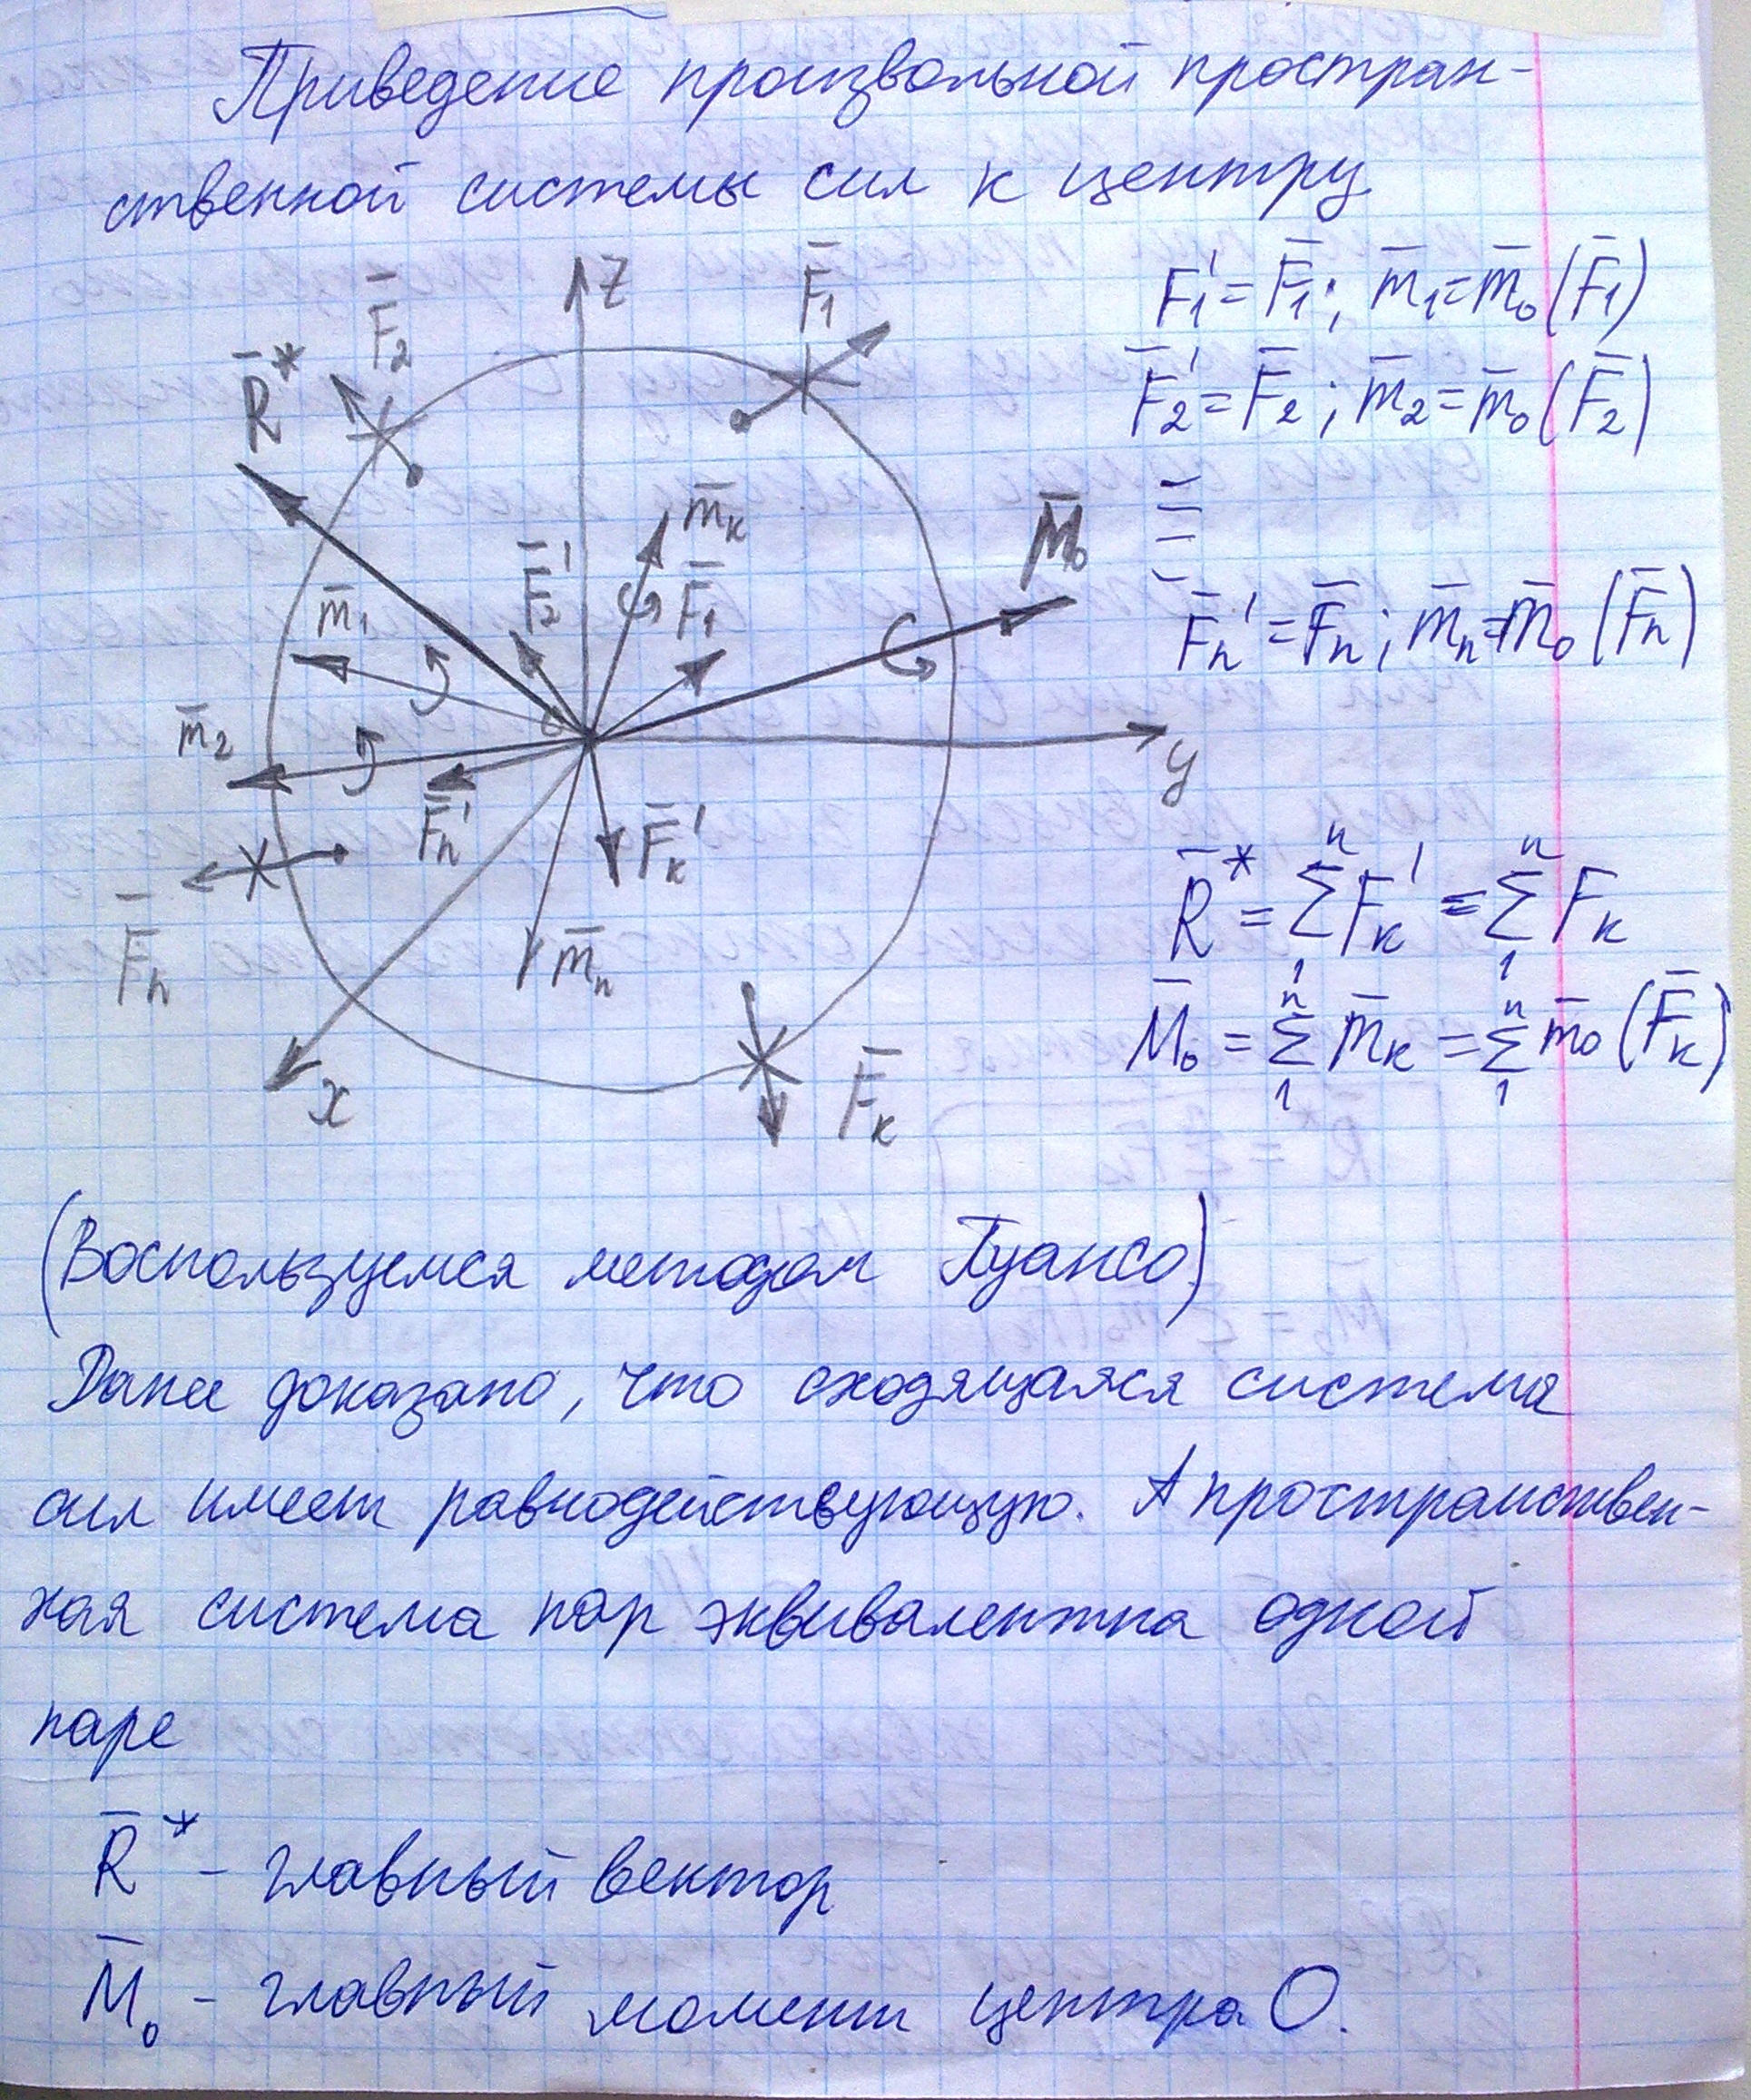 Приведение произвольной простран-
ственной системы сил к центру
F̄₂
R̄*
z
F̄₁
m̄ₖ
F̄₂'
F̄₁
M̄₀
m̄₁
m̄₂
F̄ₙ'
F̄ₖ'
y
F̄ₙ
m̄ₙ
x
F̄ₖ
F₁' = F̄₁; m̄₁ = m̄₀(F̄₁)
F̄₂' = F̄₂; m̄₂ = m̄₀(F̄₂)
F̄ₙ' = F̄ₙ; m̄ₙ = m̄₀(F̄ₙ)
R̄* = Σ₁ⁿ Fₖ' = Σ₁ⁿ Fₖ
M̄₀ = Σ₁ⁿ m̄ₖ = Σ₁ⁿ m̄₀(F̄ₖ)
(Воспользуемся методом Пуансо)
Ранее доказано, что сходящаяся система
сил имеет равнодействующую. А пространствен-
ная система пар эквивалентна одной
паре
R̄* - главный вектор
M̄₀ - главный момент центра О.